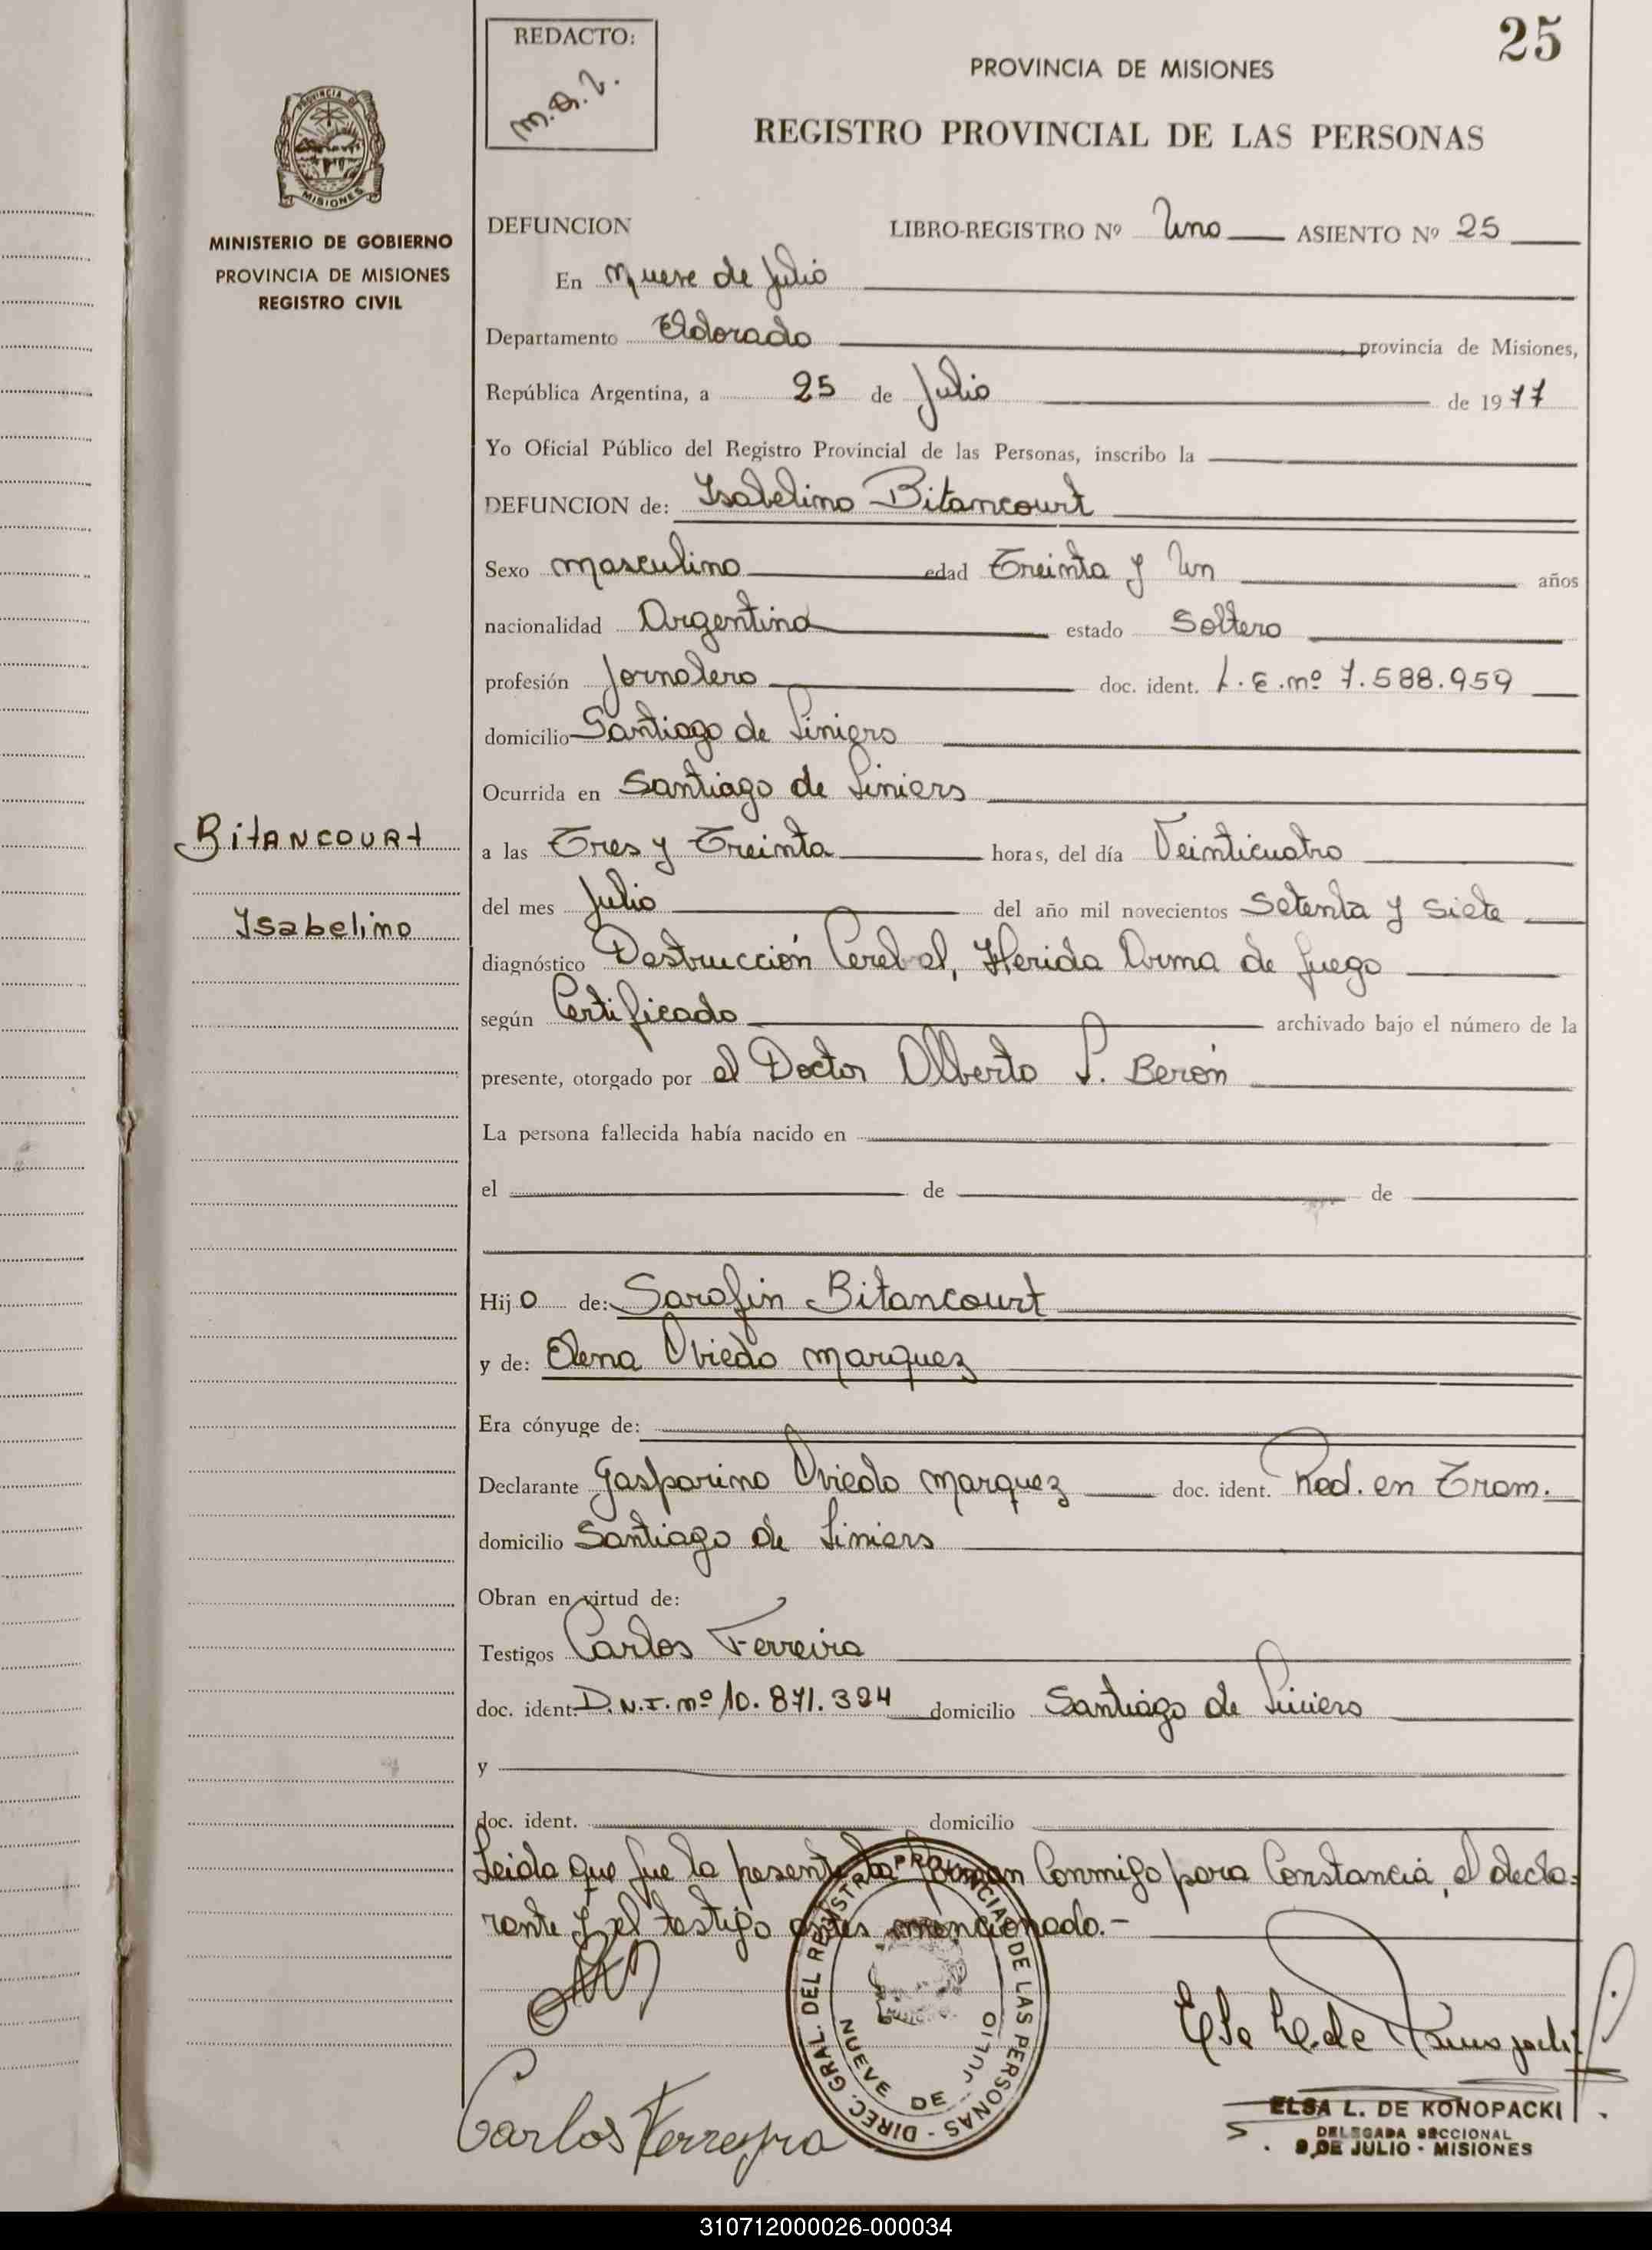 25
REDACTO:
M.A.Z.
PROVINCIA DE MISIONES
REGISTRO PROVINCIAL DE LAS PERSONAS
PROVINCIA DE
MISIONES
MINISTERIO DE GOBIERNO
PROVINCIA DE MISIONES
REGISTRO CIVIL
DEFUNCION LIBRO-REGISTRO Nº Uno ASIENTO Nº 25
En Nueve de Julio
Departamento Eldorado provincia de Misiones,
República Argentina, a 25 de Julio de 1977
Yo Oficial Público del Registro Provincial de las Personas, inscribo la
DEFUNCION de: Isabelino Bitancourt
Sexo masculino edad Treinta y Un años
nacionalidad Argentina estado Soltero
profesión Jornalero doc. ident. L.E.nº 7.588.959
domicilio Santiago de Liniers
Ocurrida en Santiago de Liniers
Bitancourt
Isabelino
a las Tres y Treinta horas, del día Veinticuatro
del mes Julio del año mil novecientos Setenta y Siete
diagnóstico Destrucción Cerebral, Herida Arma de fuego
según Certificado archivado bajo el número de la
presente, otorgado por el Doctor Alberto L. Berón
La persona fallecida había nacido en
el de de
Hijo de: Sarafin Bitancourt
y de: Elena Oviedo Marquez
Era cónyuge de:
Declarante Gasparino Oviedo Marquez doc. ident. Rad. en Tram.
domicilio Santiago de Liniers
Obran en virtud de:
Testigos Carlos Ferreira
doc. ident. D.N.I. nº 10.871.324 domicilio Santiago de Liniers
y
doc. ident. domicilio
Leida que fue la presente la firman Conmigo para Constancia, el decla-
rante y el testigo antes mencionado.-
DIREC. GRAL. DEL REGISTRO PROVINCIAL DE LAS PERSONAS -
NUEVE DE JULIO
Elsa L. de Konopacki
Carlos Ferreyra
ELSA L. DE KONOPACKI
DELEGADA SECCIONAL
9 DE JULIO - MISIONES
310712000026-000034